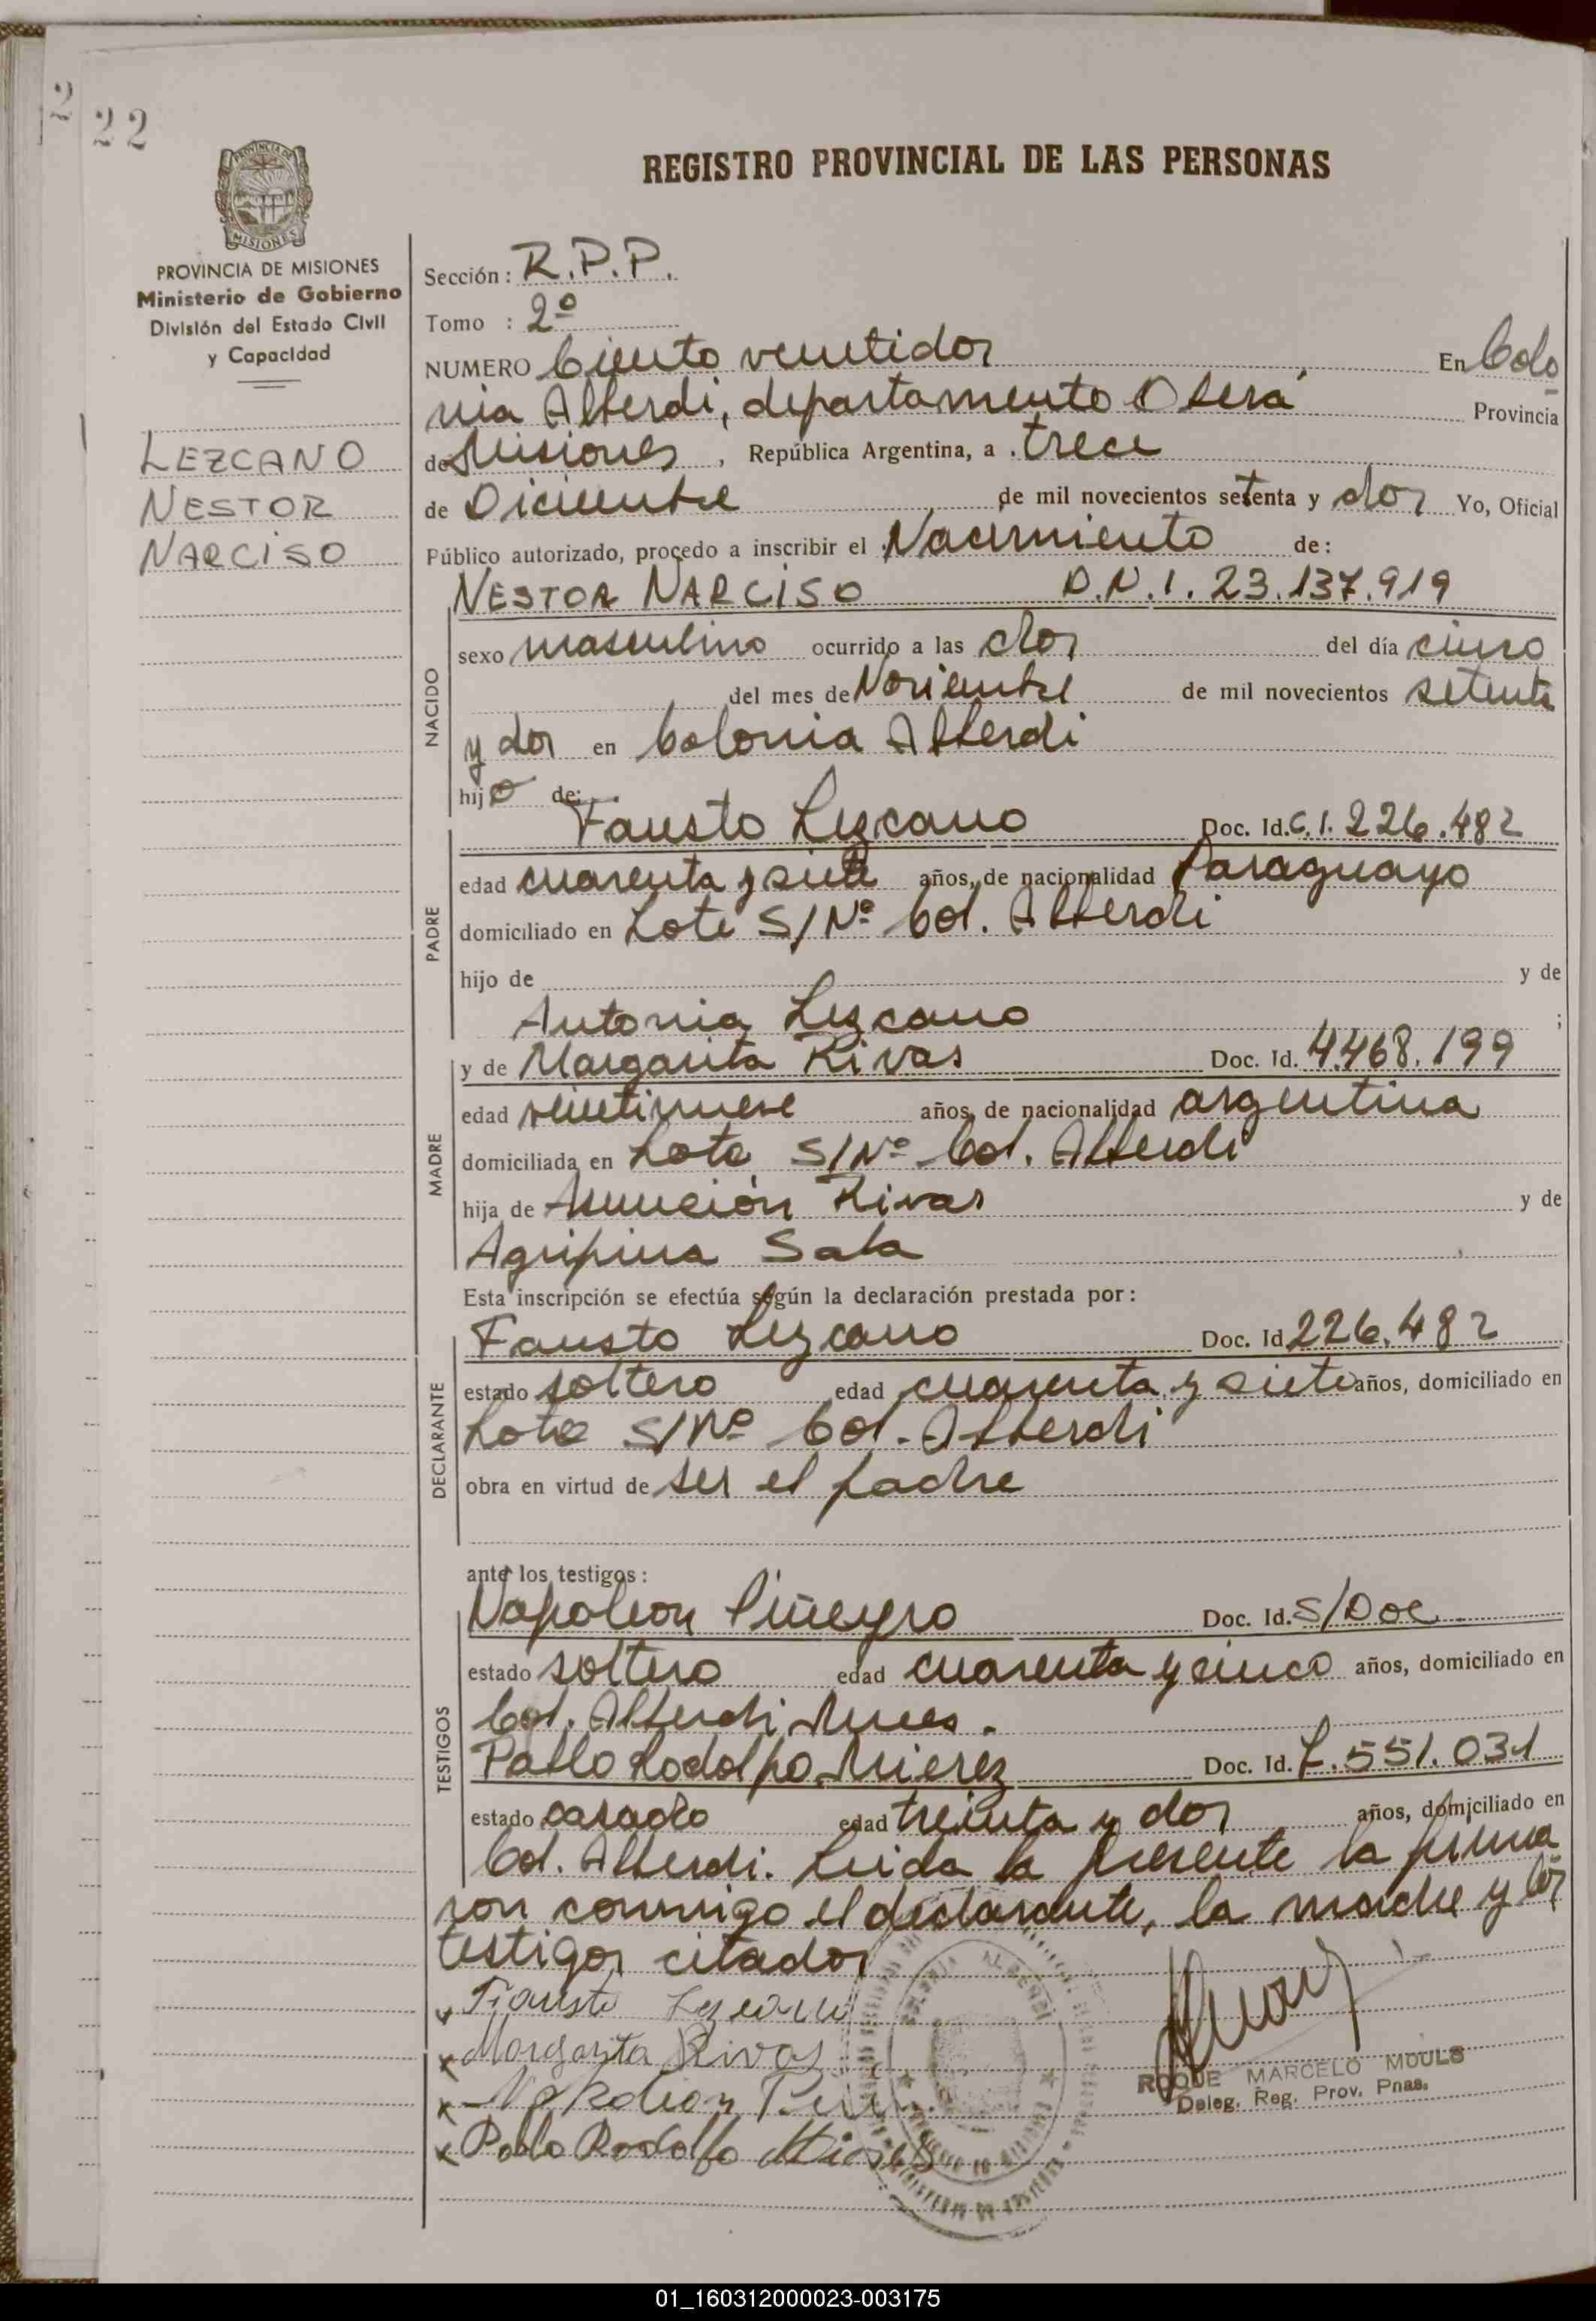 2
22
REGISTRO PROVINCIAL DE LAS PERSONAS
PROVINCIA DE MISIONES
PROVINCIA DE MISIONES
Ministerio de Gobierno
División del Estado Civil
y Capacidad
LEZCANO
NESTOR
NARCISO
Sección: R.P.P.
Tomo : 2º
NUMERO Ciento veintidos En Colo
nia Alberdi, departamento Oberá Provincia
de Misiones, República Argentina, a trece
de Diciembre de mil novecientos setenta y dos Yo, Oficial
Público autorizado, procedo a inscribir el Nacimiento de:
NESTOR NARCISO D.N.I. 23.137.919
NACIDO
sexo masculino ocurrido a las dos del día cinco
del mes de Noviembre de mil novecientos setenta
y dos en Colonia Alberdi
hijo de:
PADRE
Fausto Lezcano Doc. Id. C.I. 226.482
edad cuarenta y siete años, de nacionalidad Paraguayo
domiciliado en Lote S/Nº Col. Alberdi
hijo de y de
Antonia Lezcano ;
MADRE
y de Margarita Rivas Doc. Id. 4.468.199
edad veintinueve años, de nacionalidad argentina
domiciliada en Lote S/Nº Col. Alberdi
hija de Asunción Rivas y de
Agripina Sala
Esta inscripción se efectúa según la declaración prestada por:
DECLARANTE
Fausto Lezcano Doc. Id 226.482
estado soltero edad cuarenta y siete años, domiciliado en
Lote S/Nº Col. Alberdi
obra en virtud de ser el padre
ante los testigos:
TESTIGOS
Napoleon Piñeyro Doc. Id. S/Doc
estado soltero edad cuarenta y cinco años, domiciliado en
Col. Alberdi Mnes.
Pablo Rodolfo Mierez Doc. Id. 7.551.031
estado casado edad treinta y dos años, domiciliado en
Col. Alberdi. Leida la presente la firma
ron conmigo el declarante, la madre y los
testigos citados
x Fausto Lezcano
x Margarita Rivas
x Napoleon
x Pablo Rodolfo Mierez
ROQUE MARCELO MOULS
Deleg. Reg. Prov. Pnas.
01_160312000023-003175